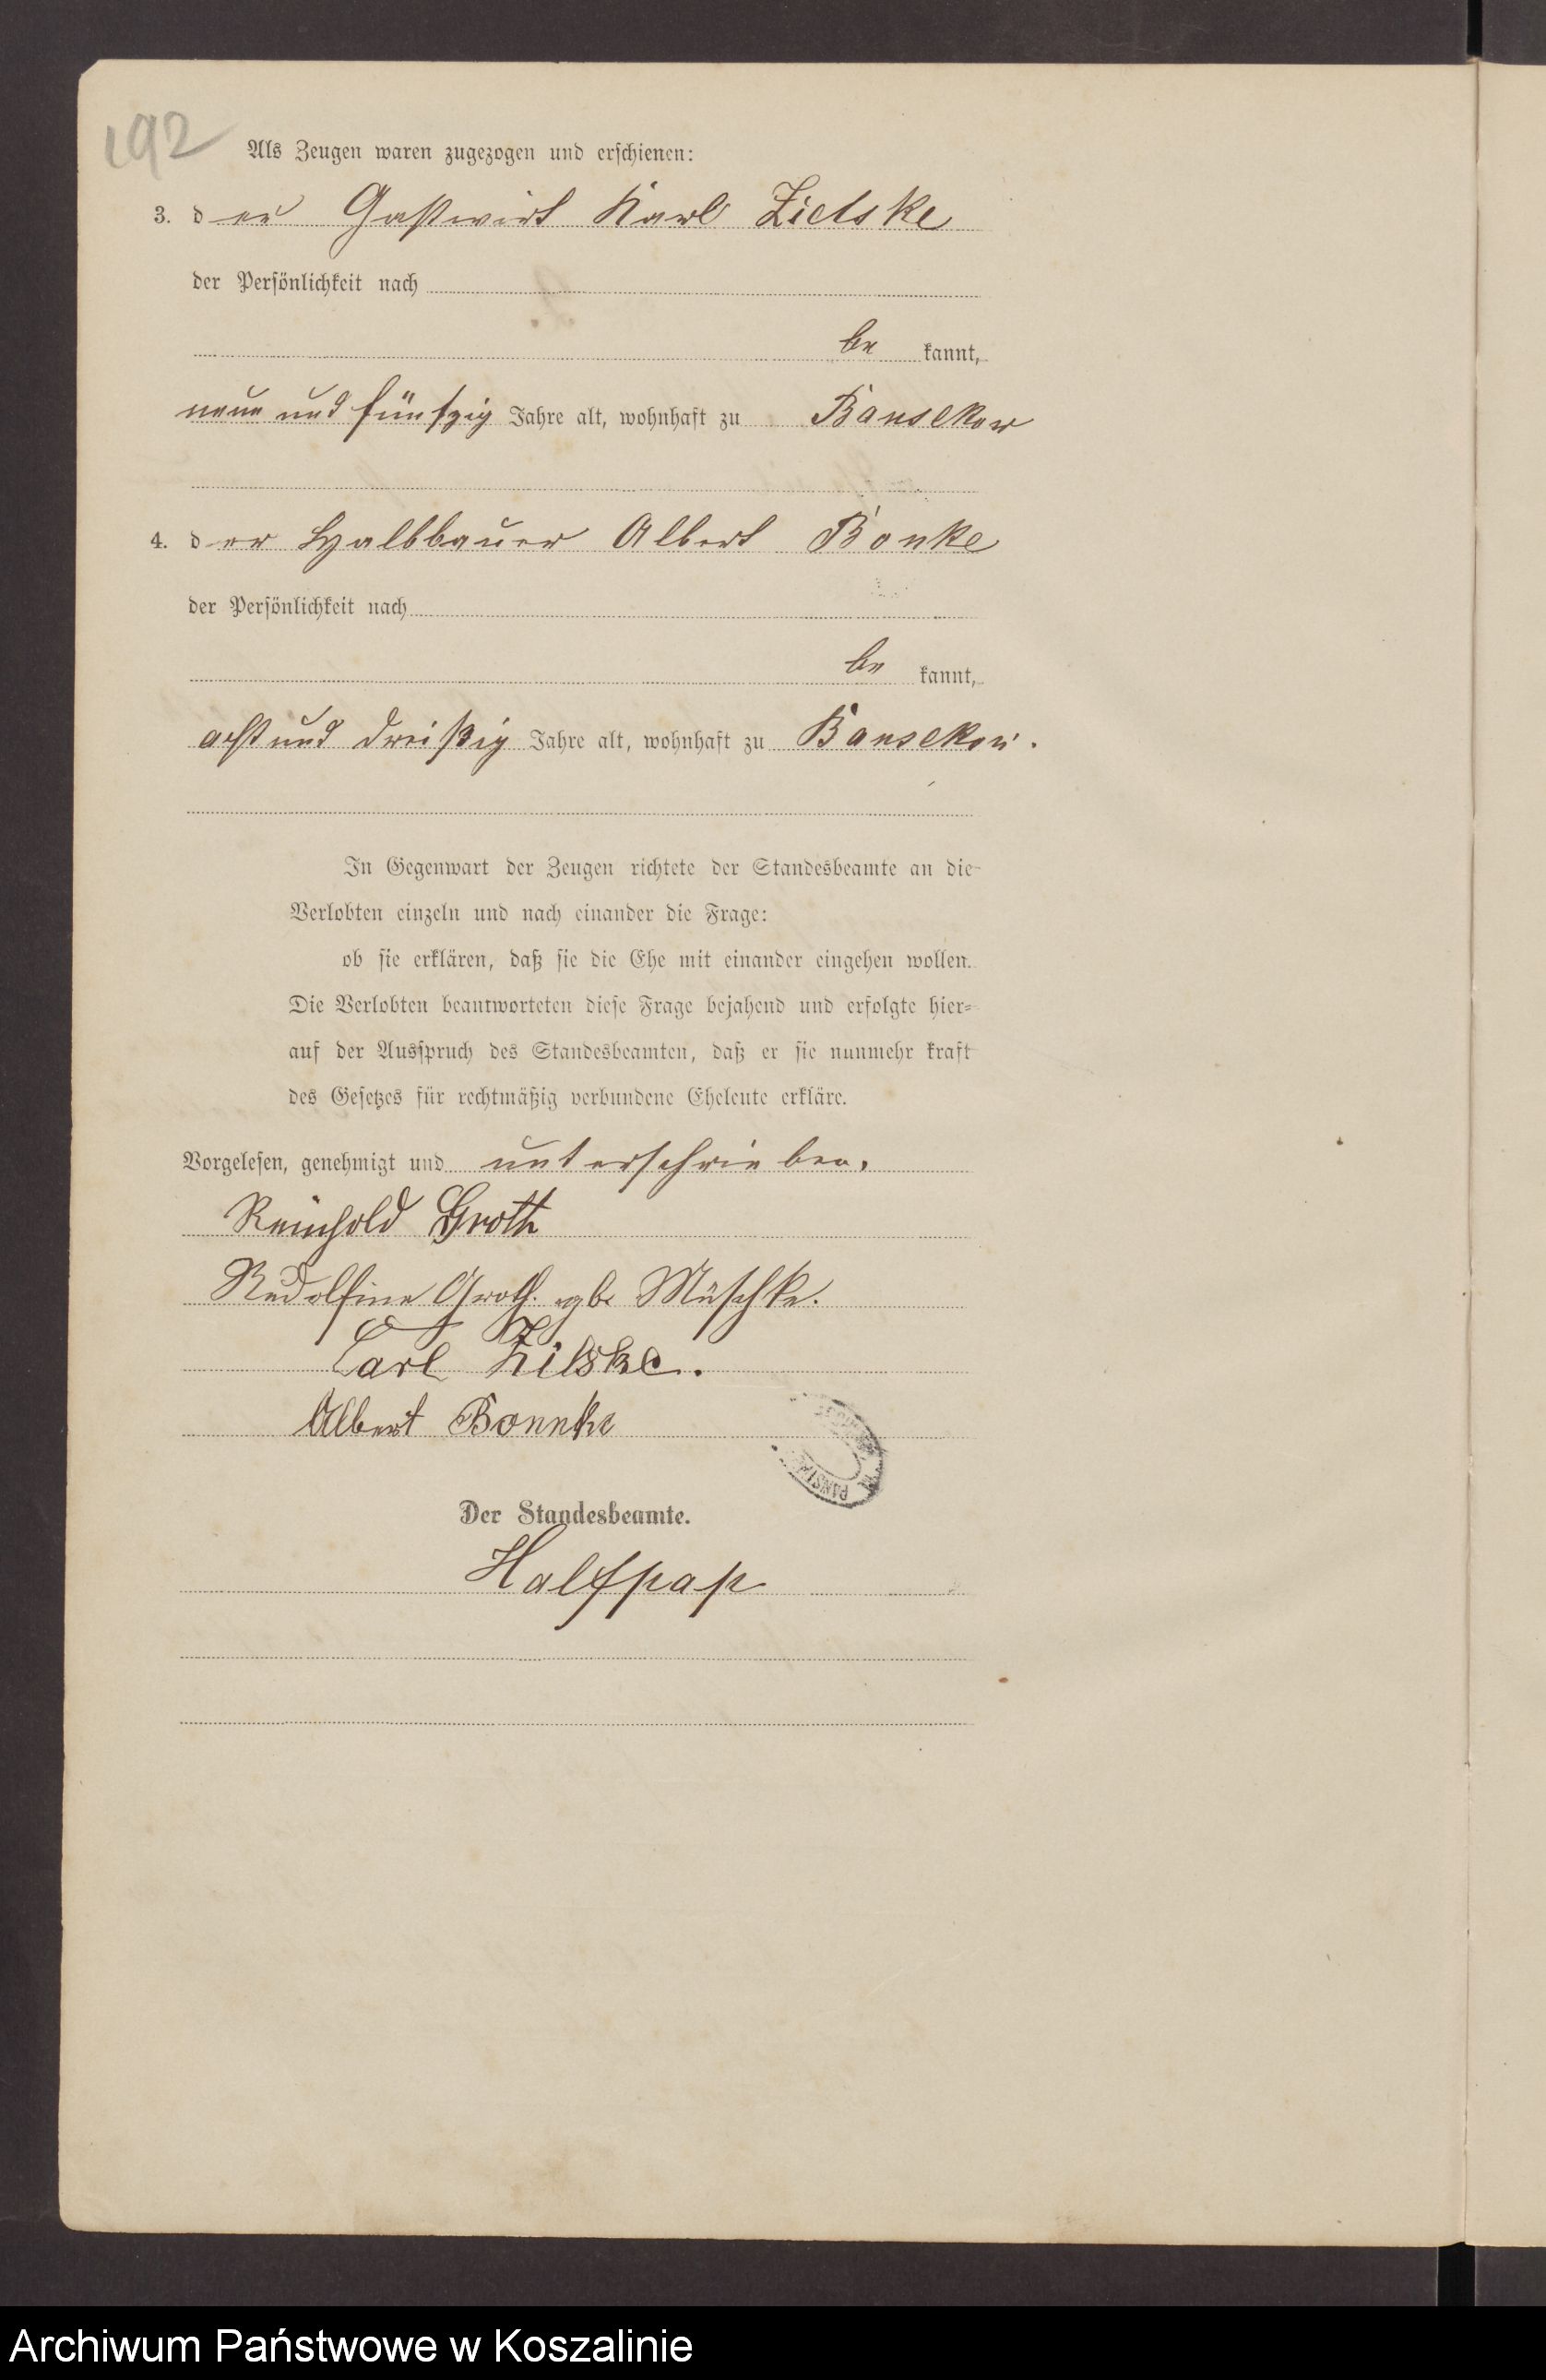 192
Als Zeugen waren zugezogen und erschienen:
3. der Gastwirt Karl Zielske
der Persönlichkeit nach
be kannt,
neun und fünfzig Jahre alt, wohnhaft zu Bansekow
4. der Halbbauer Albert Bonke
der Persönlichkeit nach
be kannt,
acht und dreißig Jahre alt, wohnhaft zu Bansekow.
In Gegenwart der Zeugen richtete der Standesbeamte an die
Verlobten einzeln und nach einander die Frage:
ob sie erklären, daß sie die Ehe mit einander eingehen wollen.
Die Verlobten beantworteten diese Frage bejahend und erfolgte hier-
auf der Ausspruch des Standesbeamten, daß er sie nunmehr kraft
des Gesetzes für rechtmäßig verbundene Eheleute erkläre.
Vorgelesen, genehmigt und unterschrieben.
Reinhold Groth
Rudolfine Groth. gb. Müschke.
Carl Zilske.
Albert Bonnke
Der Standesbeamte.
Halfpap
Archiwum Państwowe w Koszalinie